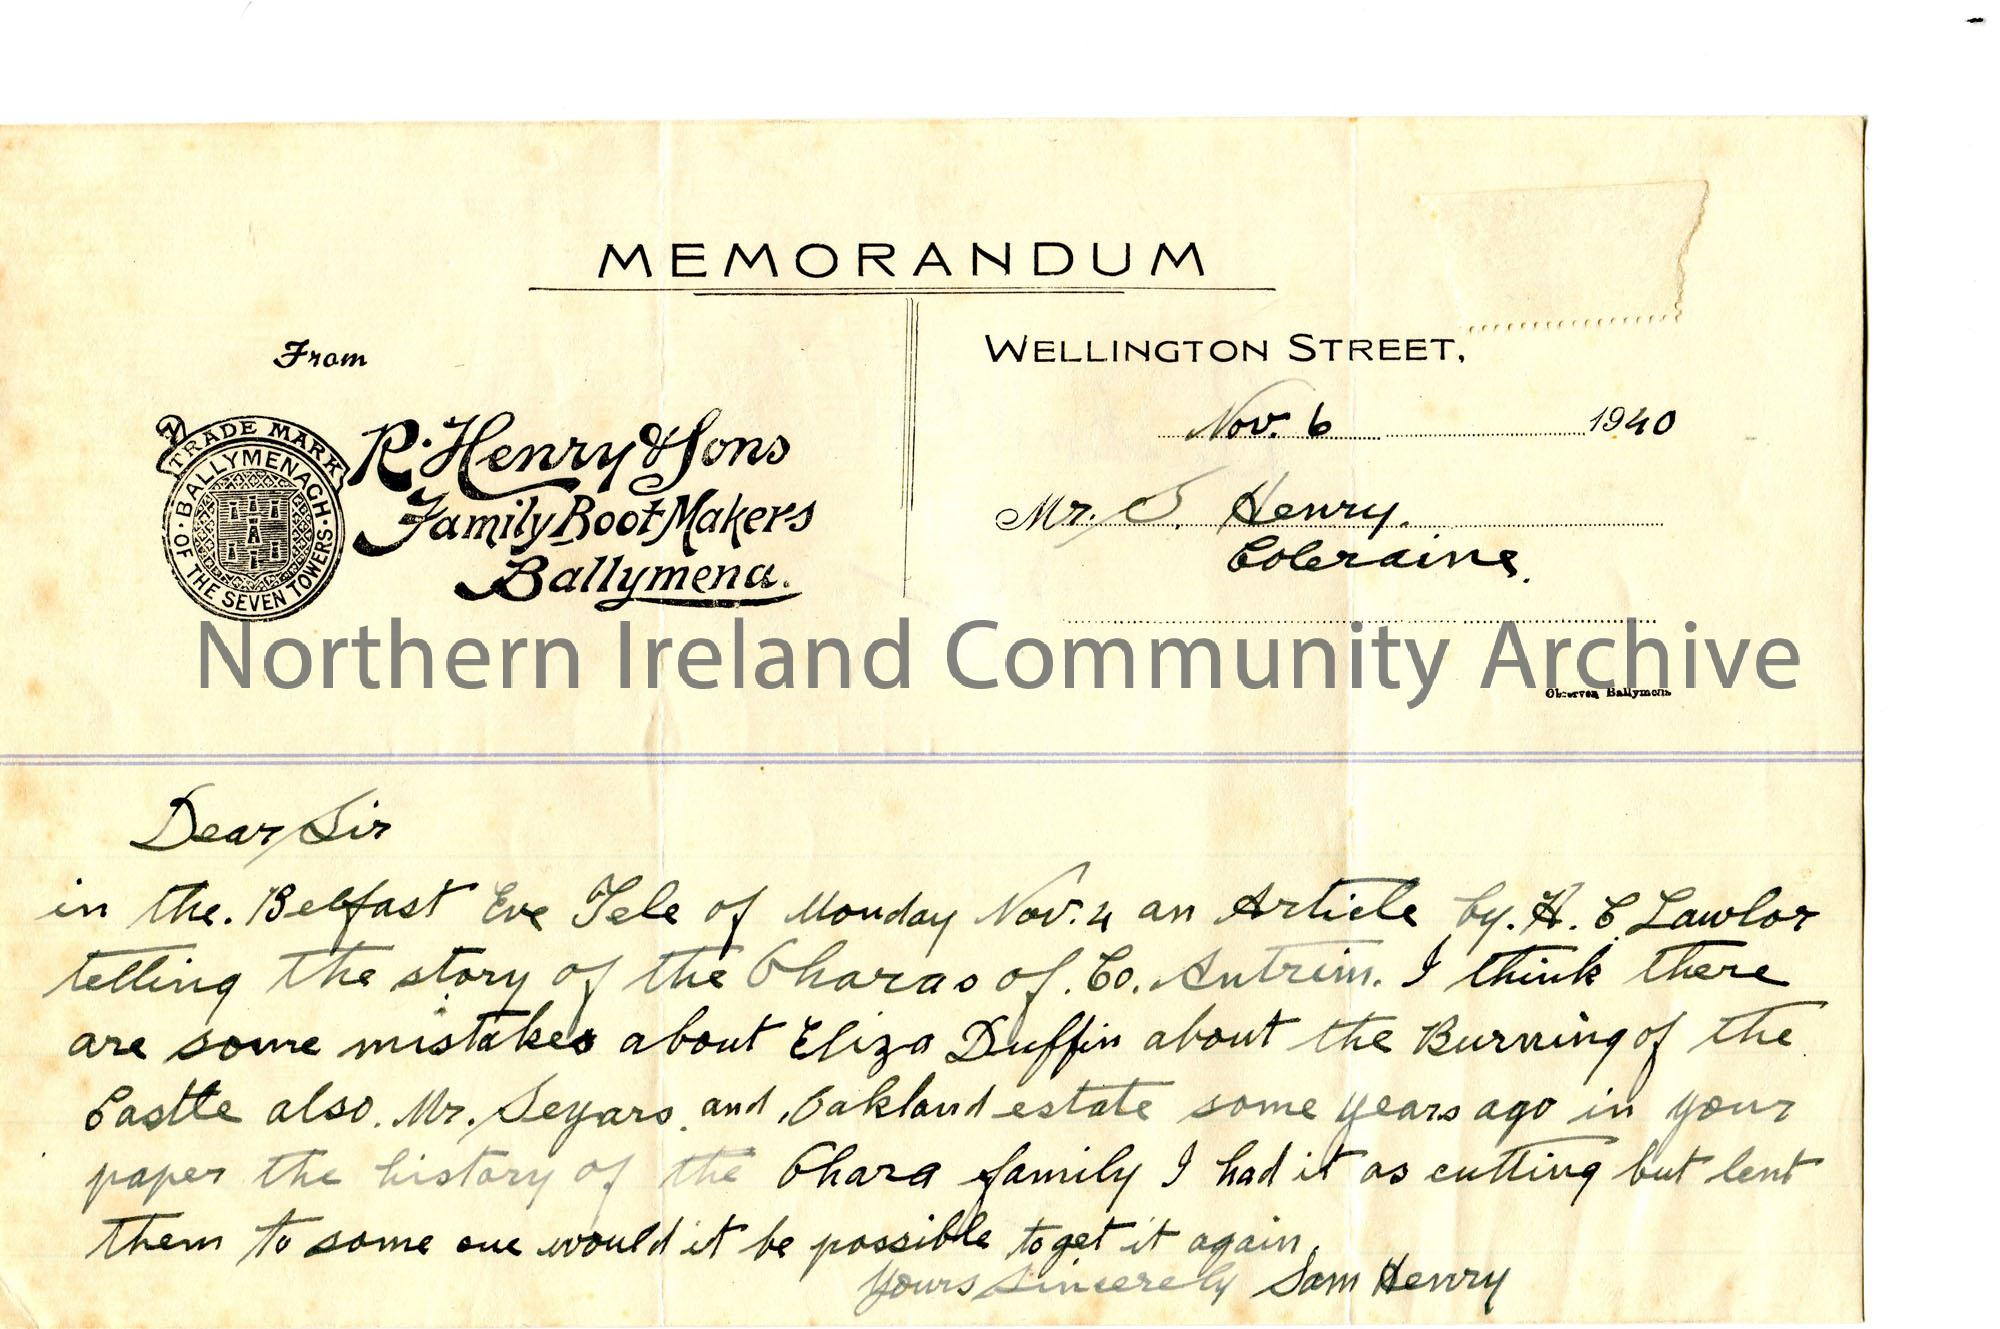 MEMORANDUM
From
WELLINGTON STREET,
Nov. 6 1940
TRADE MARK
BALLYMENAGH
OF THE SEVEN TOWERS
R. Henry & Sons
Family Boot Makers
Ballymena.
Mr. S. Henry.
Coleraine.
Northern Ireland Community Archive
Observer, Ballymena
Dear Sir
in the. Belfast Eve Tele of Monday Nov. 4 an Article by. H. C. Lawlor
telling the story of the Oharas of. Co. Antrim. I think there
are some mistakes about Eliza Duffin about the Burning of the
Castle also. Mr. and Oakland estate some years ago in your
paper the history of the Ohara family I had it as cutting but lent
them to some one would it be possible to get it again.
Yours Sincerely Sam Henry